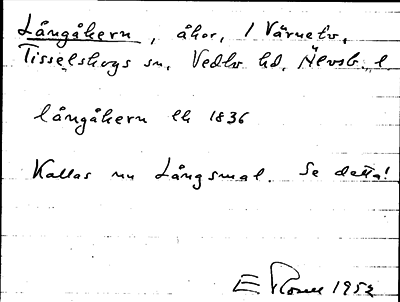 Långåkern, åker, 1 Värnebo,
Tisselskogs sn, Vedbo hd, Älvsb. l
långåkern LH 1836
Kallas nu Långsmal. Se detta!
E Rosell 1952